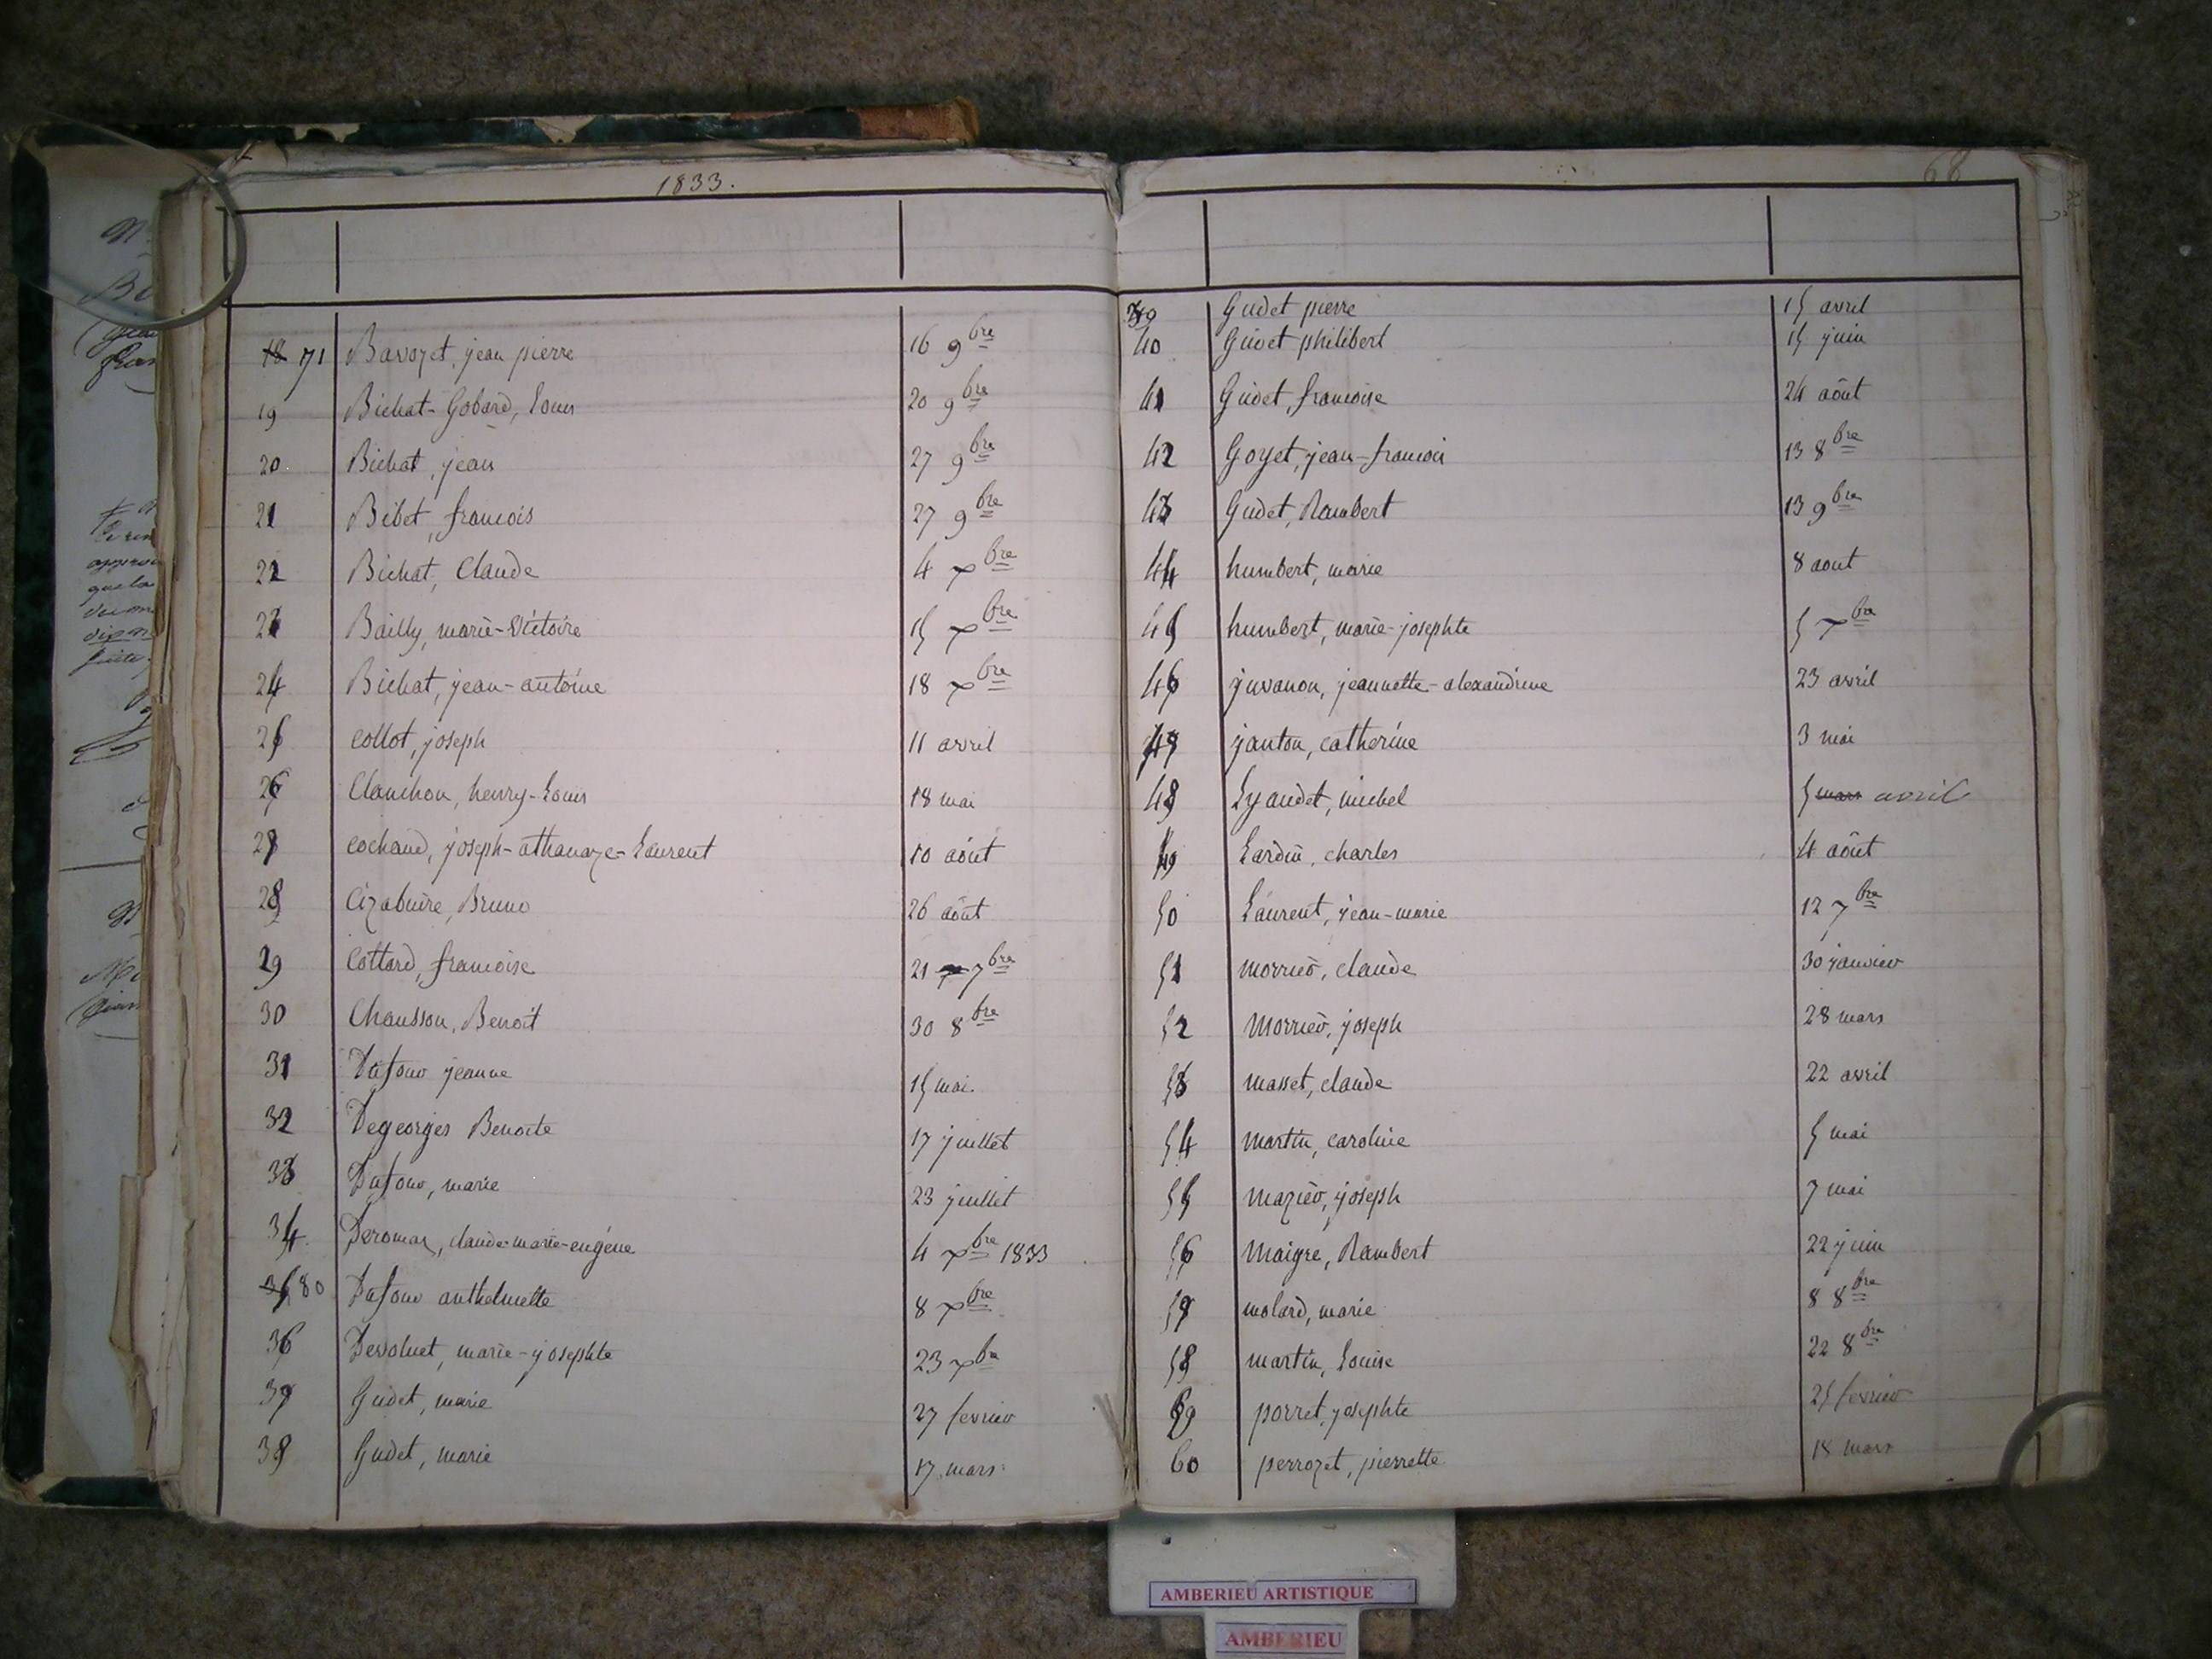 1833.
71 Bavozet, jean pierre 16 9bre
19 Bichat-Gobard, Louis 20 9bre
20 Bichat, jean 27 9bre
21 Bibet, francois 27 9bre
22 Bichat, Claude 4 xbre
23 Bailly, marie-Victoire 15 xbre
24 Bichat, jean-antoine 18 xbre
25 collot, joseph 11 avril
26 Clanchon, henry-Louis 18 mai
27 cochand, joseph-athanaze-Laurent 10 août
28 Cizabuire, Bruno 26 août
29 Cottard, francoise 21 7bre
30 Chausson, Benoit 30 8bre
31 Dufour jeanne 15 mai
32 Degeorges Benoite 17 juillet
33 Dufour, marie 23 juillet
34 Deromas, claude-marie-eugéne 4 xbre 1833
80 Dufour anthelmette 8 xbre
36 Devoluet, marie-josephte 23 xbre
37 Gudet, marie 27 fevrier
38 Gudet, marie 17 mars
68
39 Gudet pierre 15 avril
40 Guivet philibert 15 juin
41 Gudet, francoise 24 août
42 Goyet, jean-francois 13 8bre
43 Gudet, Rambert 13 9bre
44 humbert, marie 8 aout
45 humbert, marie-josephte 5 7bre
46 juvanon, jeannette-alexandrine 23 avril
47 janton, catherine 3 mai
48 Lyaudet, michel 5 mars avril
49 Lardin, charles 4 août
50 Laurent, jean-marie 12 7bre
51 morrier, claude 30 janvier
52 Morrier, joseph 28 mars
53 masset, claude 22 avril
54 martin, caroline 5 mai
55 mazier, joseph 7 mai
56 Maigre, Rambert 22 juin
57 molard, marie 8 8bre
58 martin, Louise 22 8bre
59 porret, josephte 25 fevrier
60 perrozet, pierrette 18 mars
AMBERIEU ARTISTIQUE
AMBERIEU